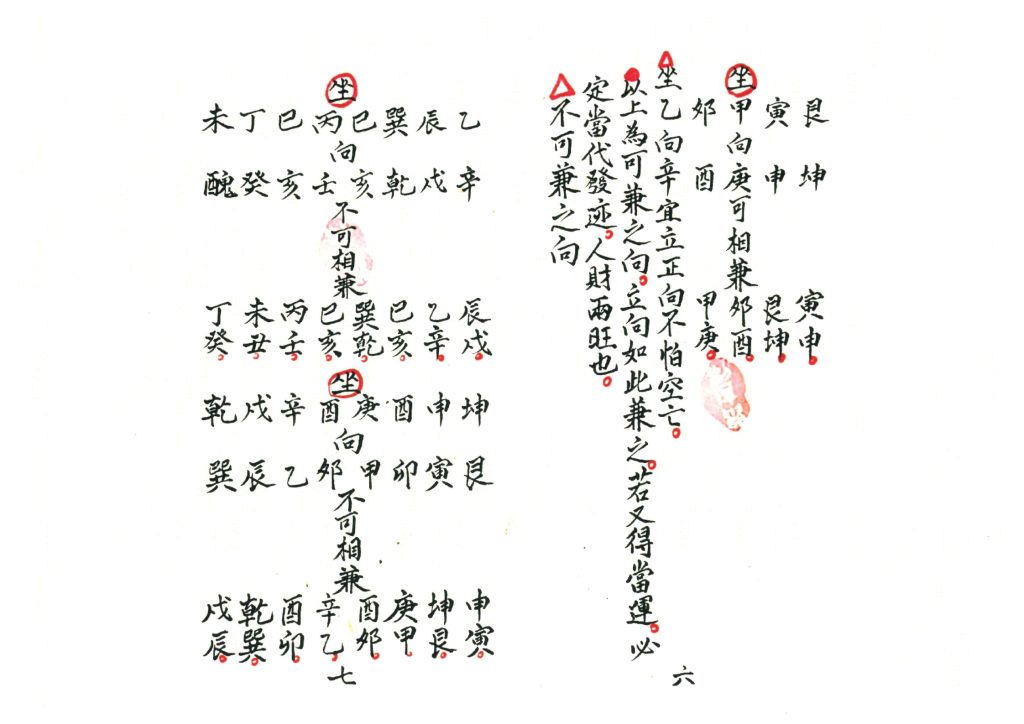 艮 坤 寅申。
寅 申 艮坤。
坐甲向庚可相兼夘酉。
夘 酉 甲庚。
坐乙向辛宜立正向不怕空亡。
以上為可兼之向。立向如此兼之。若又得當運。必
定當代發迹。人財兩旺也。
不可兼之向
六
乙 辛 辰戌。
辰 戌 乙辛。
巽 乾 巳亥。
巳 亥 巽乾。
坐丙向壬不可相兼巳亥。
巳 亥 丙壬。
丁 癸 未丑。
未 醜 丁癸。
坤 艮 申寅。
申 寅 坤艮。
酉 卯 庚甲。
庚 甲 酉夘。
坐酉向夘不可相兼辛乙。
辛 乙 酉卯。
戌 辰 乾巽。
乾 巽 戌辰。
七